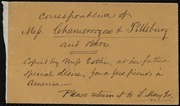 Correspondence of
Mess. Chamerovzow & Pillsbury
and others.
Copied by Miss Estlin, at her father's
special desire, for a few friends in
America.
Please return it to S. May Jr.